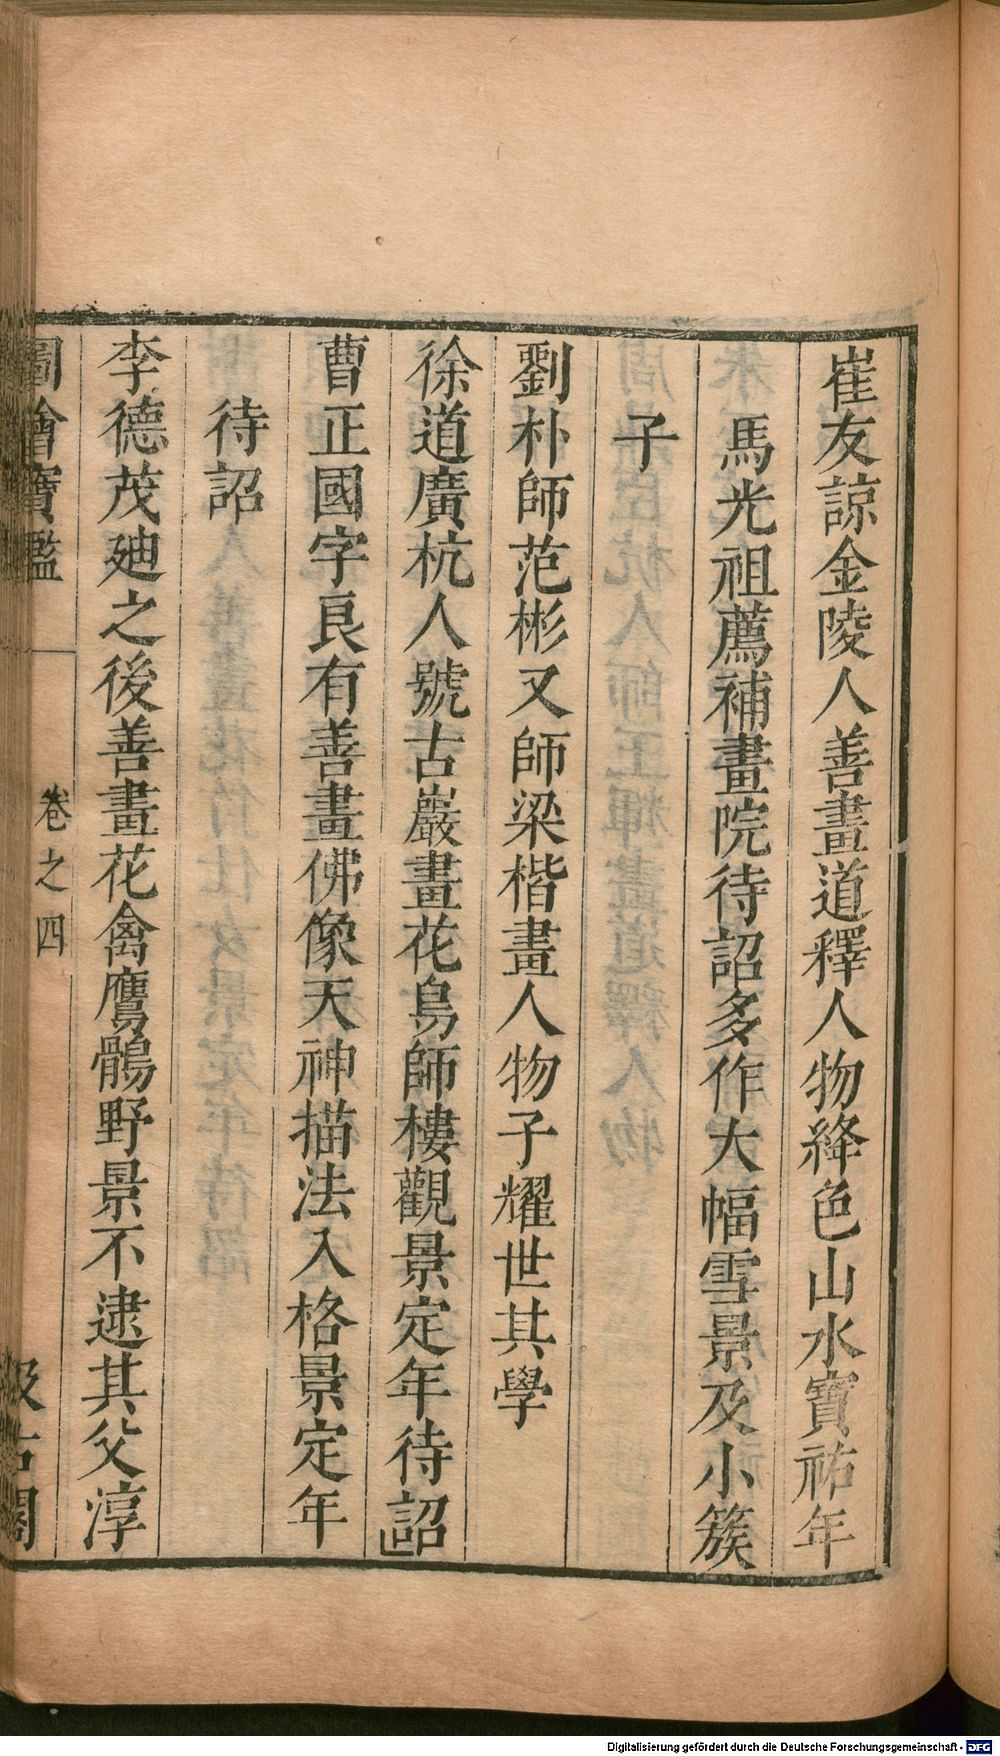 崔友諒金陵人善畫道釋人物絳色山水寶祐年
馬光祖薦補畫院待詔多作大幅雪景及小簇
子
劉朴師范彬又師梁楷畫人物子耀世其學
徐道廣杭人號古巖畫花鳥師樓觀景定年待詔
曹正國字良有善畫佛像天神描法入格景定年
待詔
李德茂廸之後善畫花禽鷹鶻野景不逮其父淳
圖繪寶鑑
卷之四
汲古閣
Digitalisierung gefördert durch die Deutsche Forschungsgemeinschaft - DFG